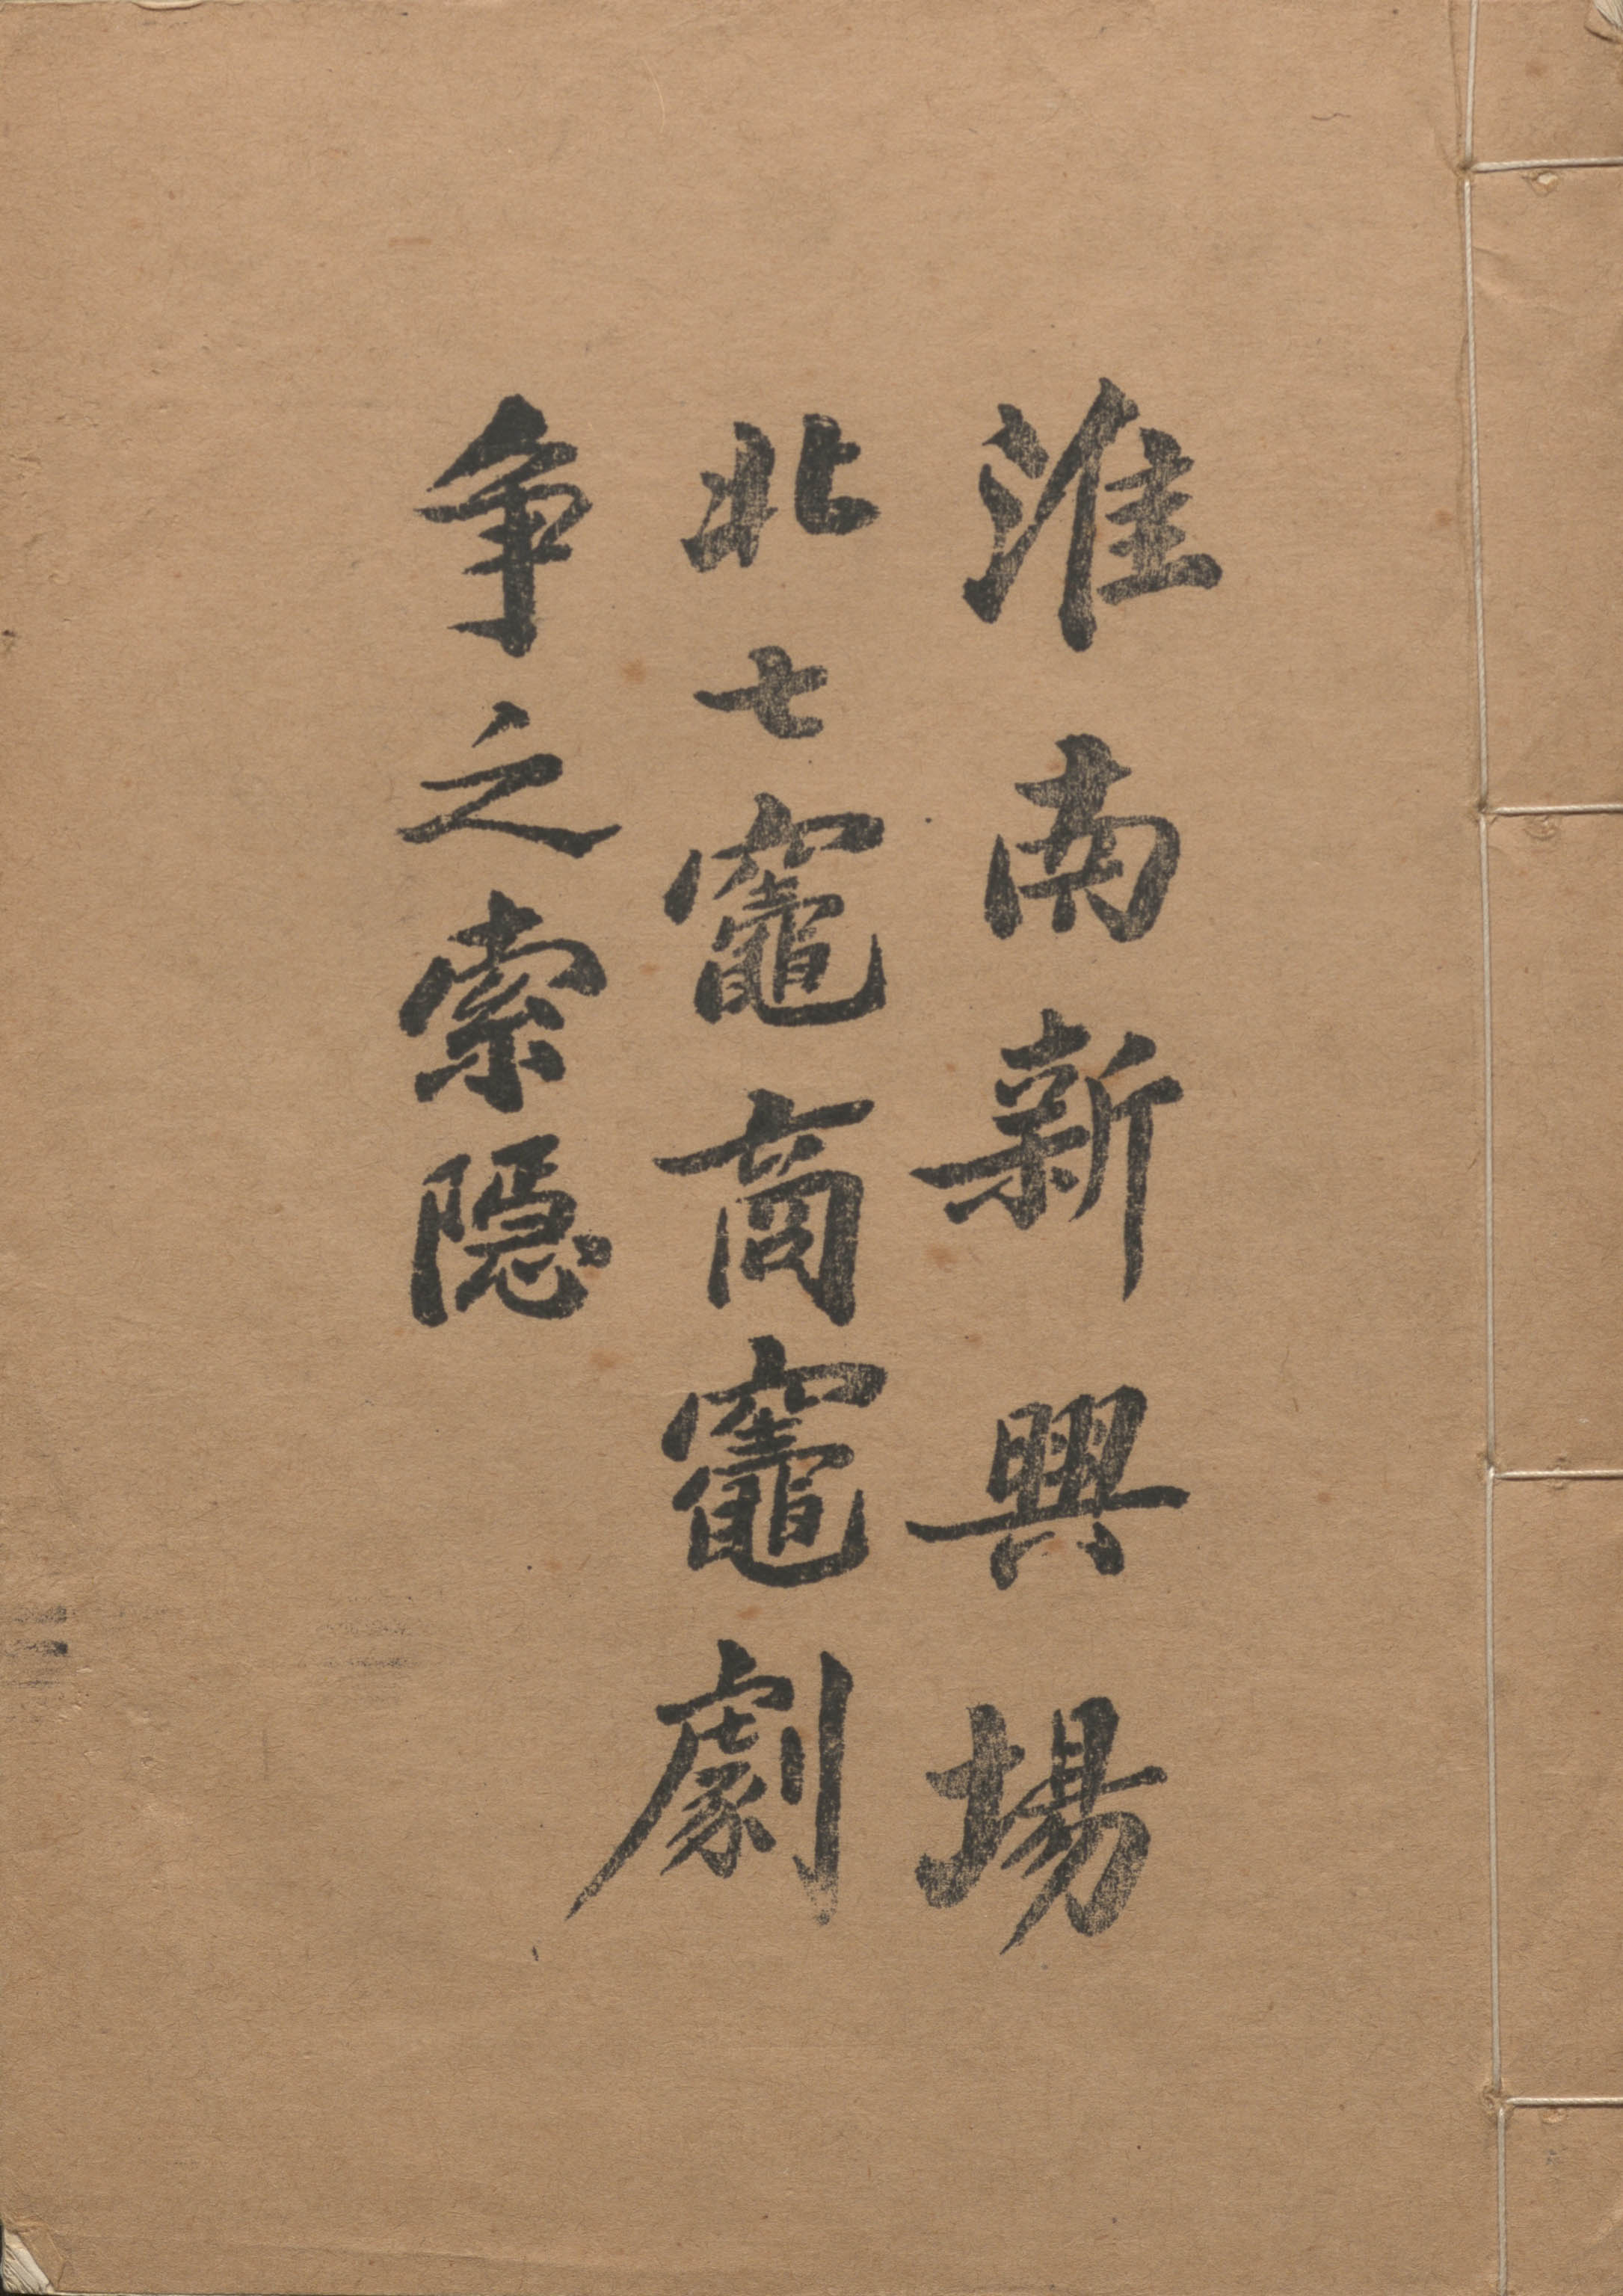 淮南新興場
北七竈商竈劇
爭之索隱